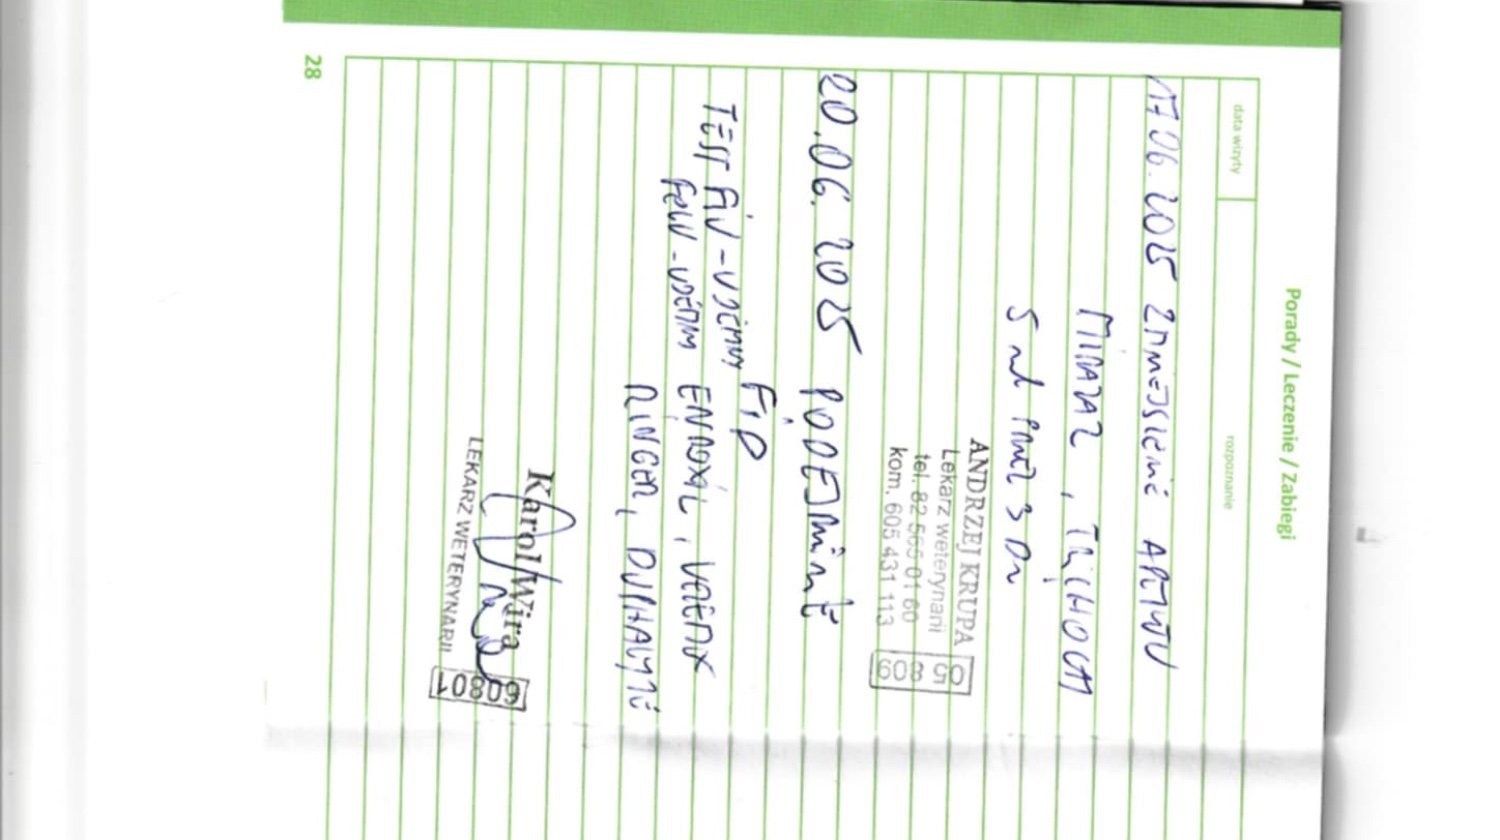 Porady / Leczenie / Zabiegi
data wizyty rozpoznanie
17.06.2025 ZMNIEJSZENIE APETYTU
MIRAZAZ,
5 ml 3 Dn
ANDRZEJ KRUPA
Lekarz weterynarii
tel. 82 565 01 60
kom. 605 431 113
05
809
20.06.2025 PODEJRZENIE
FIP
TEST FIV - UJEMNY
FELV - UJEMNY ENROXIL, VETEMEX
RINGER, DUPHALYTE
Karol Wira
LEKARZ WETERYNARII
60801
28